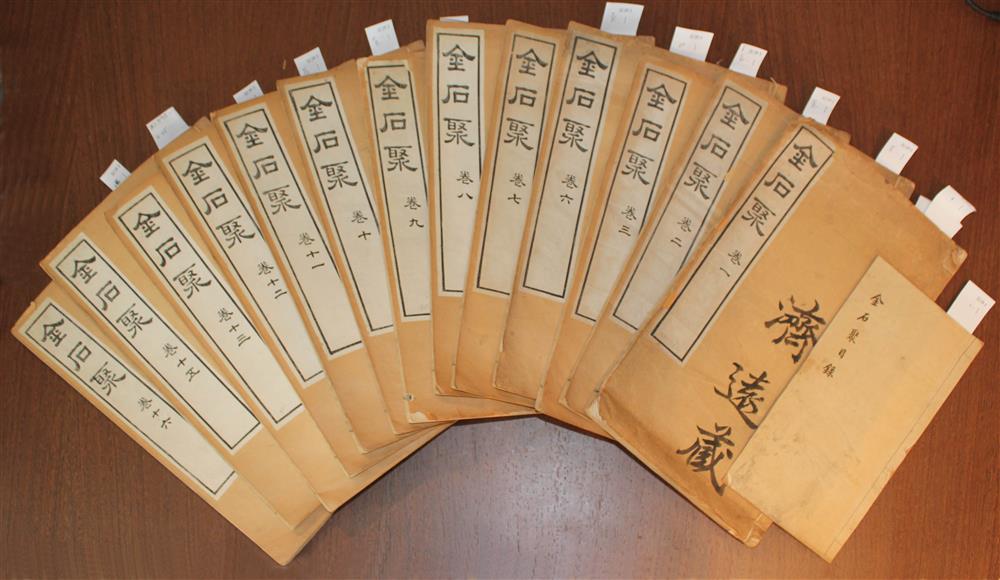 金石聚目錄
金石聚 卷一
濟遠藏
金石聚 卷二
金石聚 卷三
金石聚 卷六
金石聚 卷七
金石聚 卷八
金石聚 卷九
金石聚 卷十
金石聚 卷十一
金石聚 卷十二
金石聚 卷十三
金石聚 卷十五
金石聚 卷十六